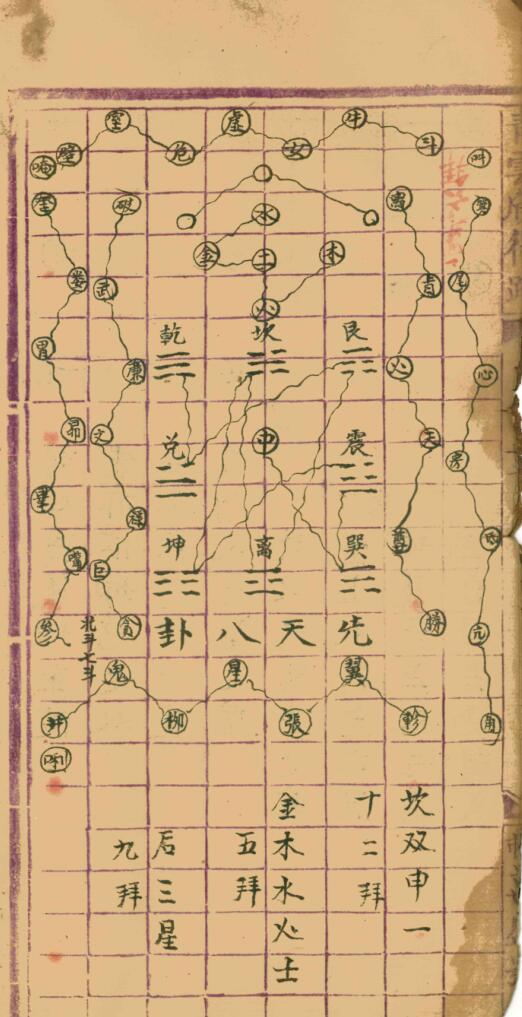 斗 牛 女 虚 危 室 壁
奎 娄 胃 昴 畢 觜 參
尾 心 房 氐 亢 角
破 武 廉 文 禄 巨 貪
北斗七斗
水
金 土 木
火
艮 坎 乾
震 中 兑
巽 离 坤
先天八卦
軫 翼 張 星 柳 鬼 井
坎双申一
十二拜
金木水火土
五拜
后三星
九拜